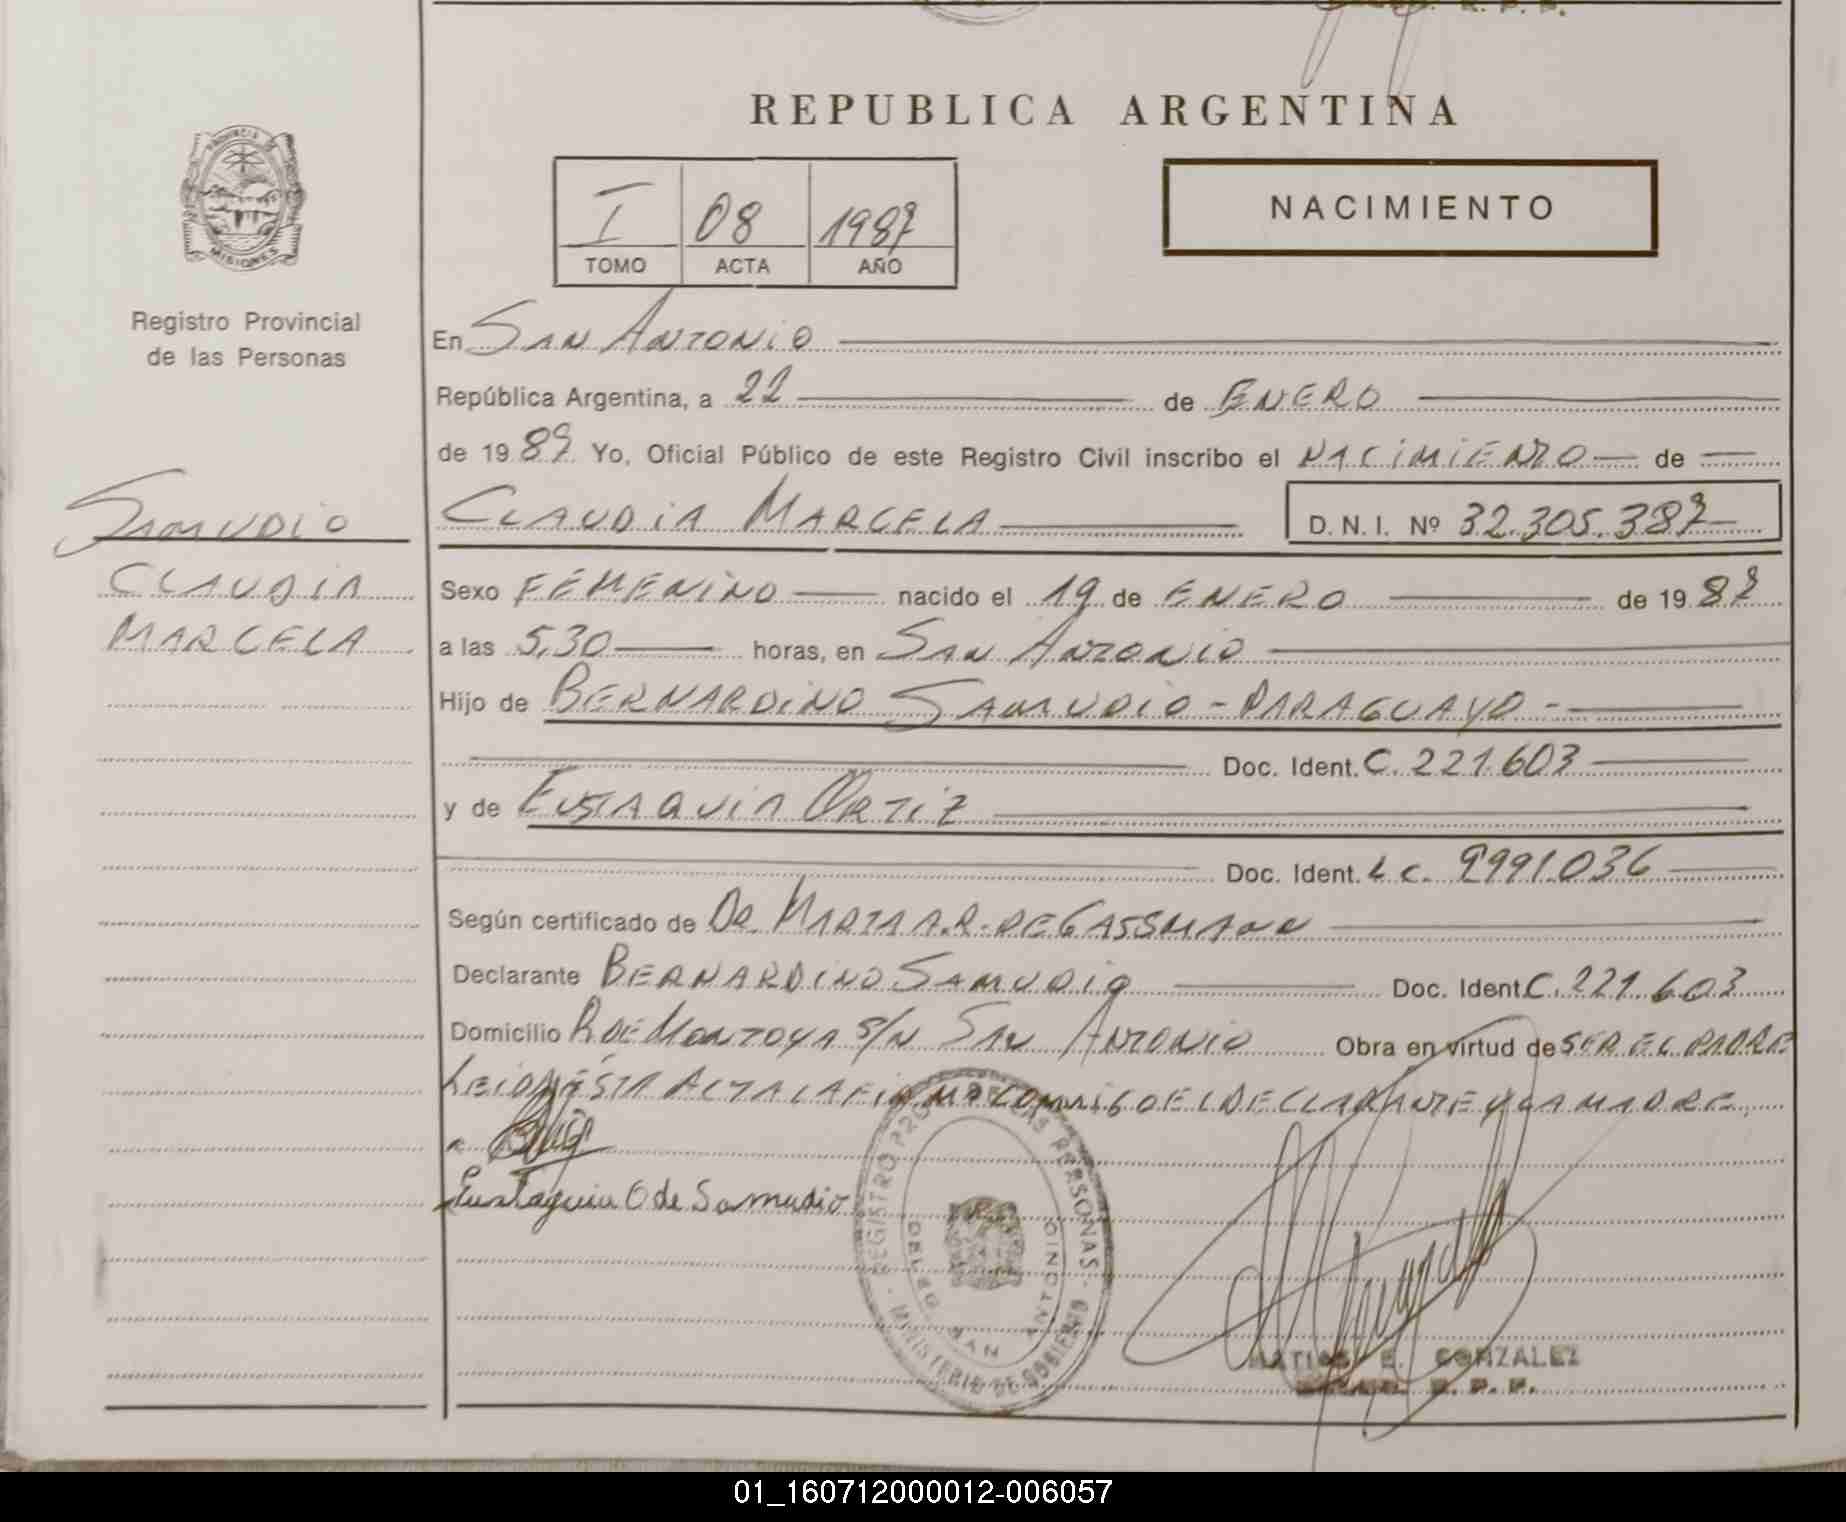 R. P. P.
REPUBLICA ARGENTINA
I 08 1987
TOMO ACTA AÑO
NACIMIENTO
PROVINCIA DE
MISIONES
Registro Provincial
de las Personas
En SAN ANTONIO
República Argentina, a 22 de ENERO
de 1987 Yo, Oficial Público de este Registro Civil inscribo el NACIMIENTO de
SAMUDIO
CLAUDIA
MARCELA
CLAUDIA MARCELA D. N. I. Nº 32.305.387
Sexo FEMENINO nacido el 19 de ENERO de 1987
a las 5,30 horas, en SAN ANTONIO
Hijo de BERNARDINO SAMUDIO - PARAGUAYO -
Doc. Ident. C. 221.603
y de EUSTAQUIA ORTIZ
Doc. Ident. L c. 9991.036
Según certificado de DR. MARTA A.R. DE GASSMANN
Declarante BERNARDINO SAMUDIO Doc. Ident C. 221.603
Domicilio R DE MONTOYA S/N SAN ANTONIO Obra en virtud de SER EL PADRE
LEIDA ESTA ACTA LA FIRMA COMIGO EL DECLARANTE Y LA MADRE
Eustaquia O de Samudio
REGISTRO PROV. DE LAS PERSONAS
DELEG. SAN ANTONIO
MINISTERIO DE GOBIERNO
MATIAS E. GONZALEZ
R. P. P.
01_160712000012-006057